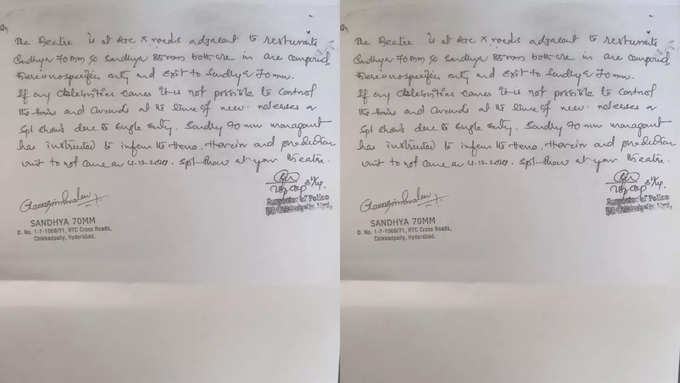 The Theatre is at RTC X roads adjacent to resturants
Sandhya 70MM so Sandhya 35mm both are in one compound
There is no specific entry and exit to Sandhya 70 mm.
If any celebrities comes it is not possible to control
the fans and crowds at the time of new releases
spl shows due to single entry. Sandhya 70 mm managment
has instructed to inform to Hero, Heroin and production
unit to not come on 4.12.2024. spl-show at your theatre.
Inspector of Police
SANDHYA 70MM
D. No. 1-7-1069/71, RTC Cross Roads,
Chikkadpally, Hyderabad.
The Theatre is at RTC X roads adjacent to resturants
Sandhya 70MM so Sandhya 35mm both are in one compound
There is no specific entry and exit to Sandhya 70 mm.
If any celebrities comes it is not possible to control
the fans and crowds at the time of new releases
spl shows due to single entry. Sandhya 70 mm managment
has instructed to inform to Hero, Heroin and production
unit to not come on 4.12.2024. spl-show at your theatre.
Inspector of Police
SANDHYA 70MM
D. No. 1-7-1069/71, RTC Cross Roads,
Chikkadpally, Hyderabad.